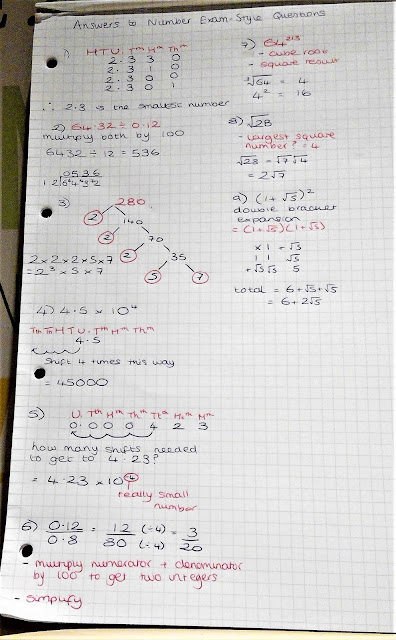 Answers to Number Exam-Style Questions
1) H T U. Tth Hth Thth
2. 3 3 0
2. 3 1 0
2. 3 0 0
2. 3 0 1
∴ 2.3 is the smallest number
2) 64.32 ÷ 0.12
multiply both by 100
6432 ÷ 12 = 536
0536
12)6 4 3 2
3) 280
2 140
2 70
2 35
5 7
2×2×2×5×7
= 2³ × 5 × 7
4) 4.5 × 10⁴
Tth Th H T U. Tth Hth Thth
4.5
Shift 4 times this way
= 45000
5) U. Tth Hth Thth Tth Hth Mth
0. 0 0 0 4 2 3
how many shifts needed
to get to 4.23?
= 4.23 × 10⁻⁴
really small
number
6) 0.12/0.8 = 12/80 (÷4)/(÷4) = 3/20
- multiply numerator + denominator
by 100 to get two integers
- simplify
7) 64^2/3
- cube root
- square result
³√64 = 4
4² = 16
8) √28
- largest square
number? = 4
√28 = √7√4
= 2√7
9) (1 + √5)²
double bracket
expansion
= (1+√5)(1+√5)
× 1 +√5
1 1 √5
+√5 √5 5
total = 6+√5+√5
= 6+2√5